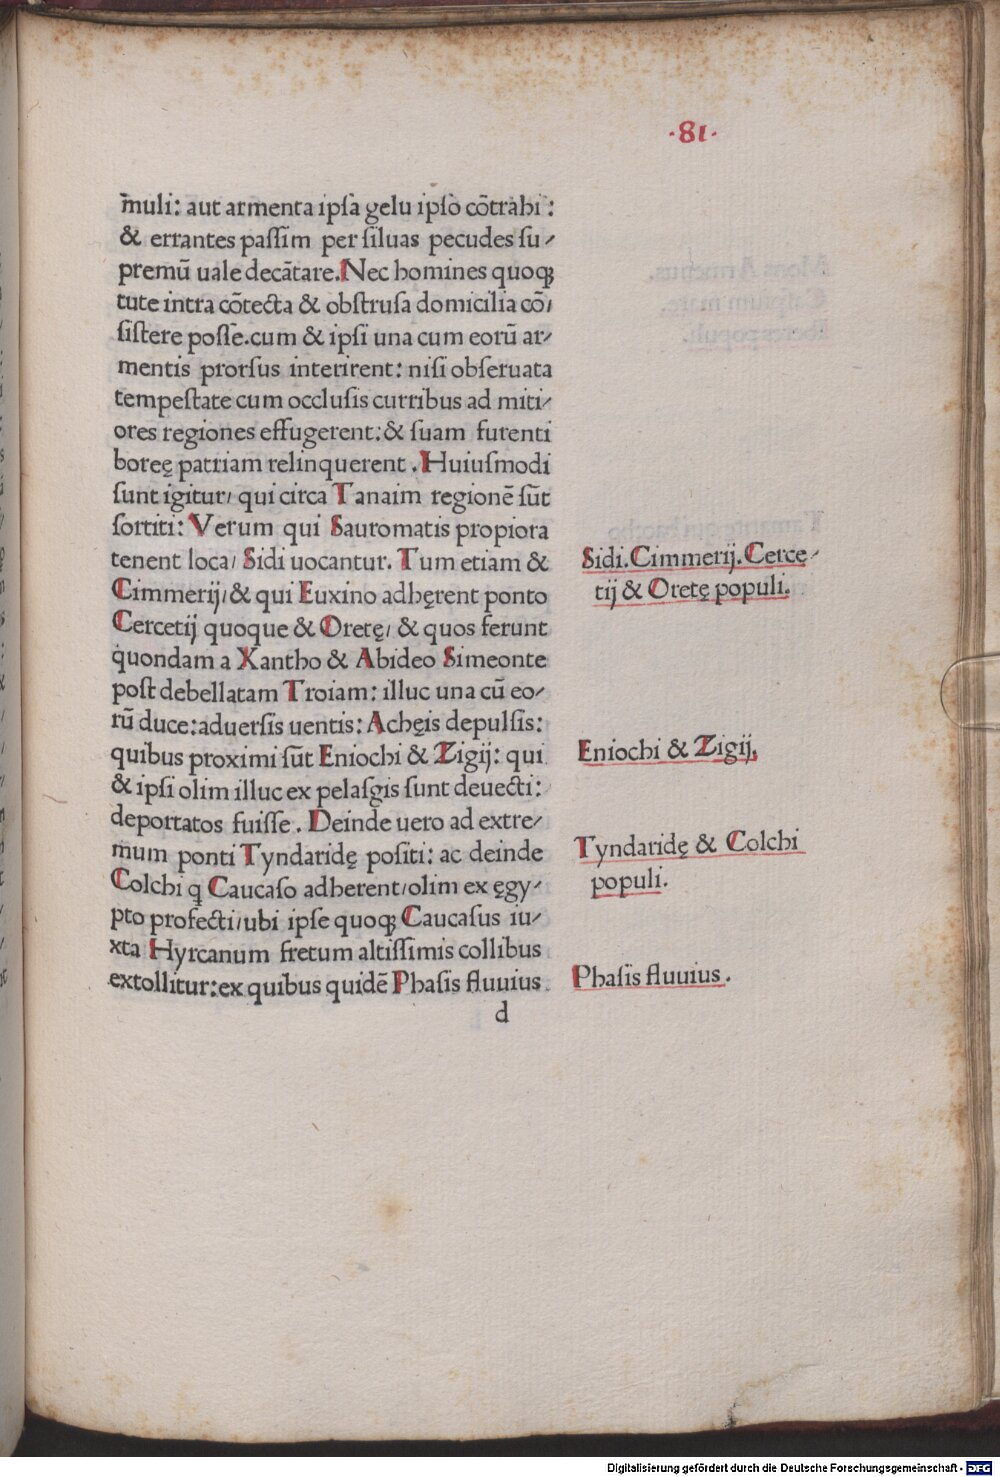 ·81·
m̄uli: aut armenta ipſa gelu ipſo cōtrahi :
& errantes paſſim per ſiluas pecudes ſu⸗
premū uale decātare. Nec homines quoqꝫ
tute intra cōtecta & obſtruſa domicilia cō/
ſiſtere poſſe. cum & ipſi una cum eorū ar⸗
mentis prorſus interirent: niſi obſeruata
tempeſtate cum occluſis curribus ad miti⸗
ores regiones effugerent: & ſuam furenti
boreę patriam relinquerent . Huiuſmodi
ſunt igitur/ qui circa Tanaim regionē ſūt
ſortiti: Verum qui Sauromatis propiora
tenent loca/ Sidi uocantur. Tum etiam &
Cimmerij/ & qui Euxino adhęrent ponto
Cercetij quoque & Oretę/ & quos ferunt
quondam a Xantho & Abideo Simeonte
poſt debellatam Troiam: illuc una cū eo⸗
rū duce: aduerſis uentis: Achęis depulſis:
quibus proximi ſūt Eniochi & Zigij: qui
& ipſi olim illuc ex pelaſgis ſunt deuecti:
deportatos fuiſſe . Deinde uero ad extre⸗
mum ponti Tyndaridę poſiti: ac deinde
Colchi q̱ Caucaſo adherent/ olim ex ęgy⸗
pto profecti/ ubi ipſe quoqꝫ Caucaſus iu⸗
xta Hyrcanum fretum altiſſimis collibus
extollitur: ex quibus quidē Phaſis fluuius
d
Sidi. Cimmerij. Cercę⸗
tij & Oretę populi.
Eniochi & Zigij.
Tyndaridę & Colchi
populi.
Phaſis fluuius .
Digitalisierung gefördert durch die Deutsche Forschungsgemeinschaft - DFG